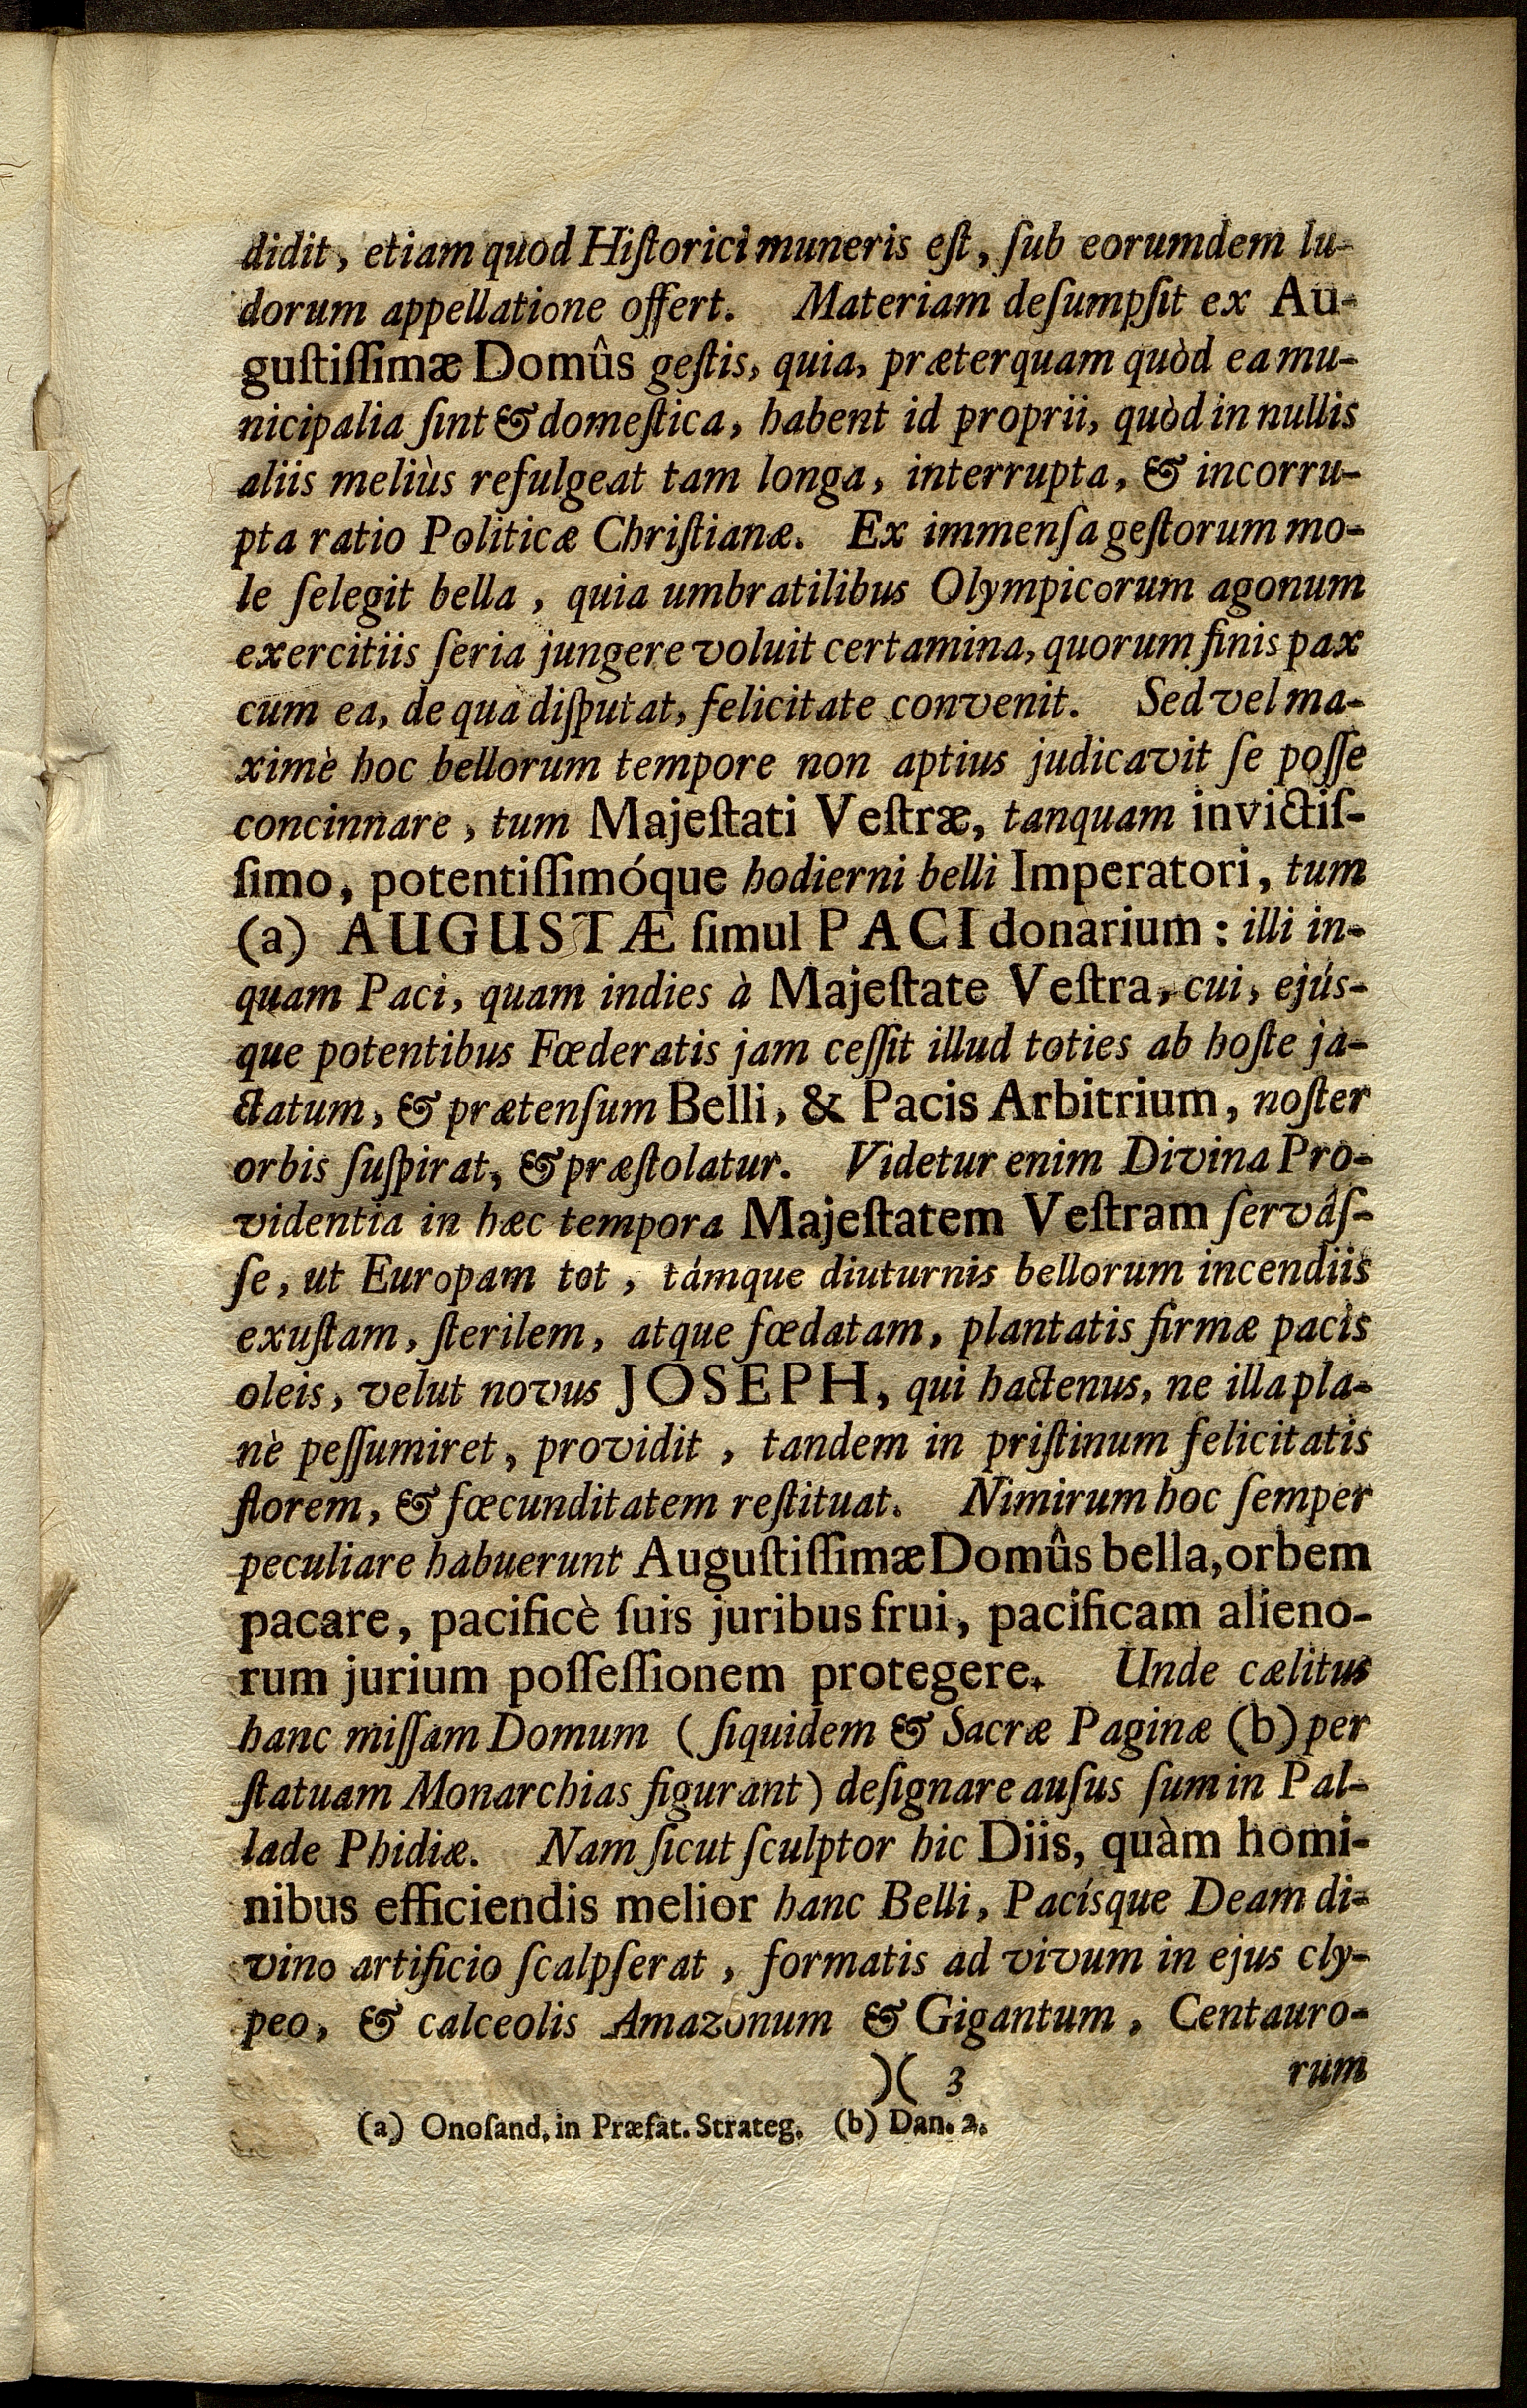 didit, etiam quod Hiſtorici muneris eſt, ſub eorumdem lu-
dorum appellatione offert. Materiam deſumpſit ex Au-
guſtiſſimæ Domûs geſtis, quia, præterquam quòd ea mu-
nicipalia ſint & domeſtica, habent id proprii, quòd in nullis
aliis meliùs refulgeat tam longa, interrupta, & incorru-
pta ratio Politicæ Chriſtianæ. Ex immenſa geſtorum mo-
le ſelegit bella, quia umbratilibus Olympicorum agonum
exercitiis ſeria jungere voluit certamina, quorum finis pax
cum ea, de qua diſputat, felicitate convenit. Sed vel ma-
ximè hoc bellorum tempore non aptius judicavit ſe poſſe
concinnare, tum Majeſtati Veſtræ, tanquam invictiſ-
ſimo, potentiſſimóque hodierni belli Imperatori, tum
(a) AUGUSTÆ ſimul PACI donarium: illi in-
quam Paci, quam indies à Majeſtate Veſtra, cui, ejús-
que potentibus Fœderatis jam ceſſit illud toties ab hoſte ja-
ctatum, & prætenſum Belli, & Pacis Arbitrium, noſter
orbis ſuſpirat, & præſtolatur. Videtur enim Divina Pro-
videntia in hæc tempora Majeſtatem Veſtram ſervâſ-
ſe, ut Europam tot, támque diuturnis bellorum incendiis
exuſtam, ſterilem, atque fœdatam, plantatis firmæ pacis
oleis, velut novus JOSEPH, qui hactenus, ne illa pla-
nè peſſumiret, providit, tandem in priſtinum felicitatis
florem, & fœcunditatem reſtituat. Nimirum hoc ſemper
peculiare habuerunt Auguſtiſſimæ Domûs bella, orbem
pacare, pacificè ſuis juribus frui, pacificam alieno-
rum jurium poſſeſſionem protegere. Unde cælitus
hanc miſſam Domum (ſiquidem & Sacræ Paginæ (b) per
ſtatuam Monarchias figurant) deſignare auſus ſum in Pal-
lade Phidiæ. Nam ſicut ſculptor hic Diis, quàm homi-
nibus efficiendis melior hanc Belli, Pacísque Deam di-
vino artificio ſcalpſerat, formatis ad vivum in ejus cly-
peo, & calceolis Amazonum & Gigantum, Centauro-
)( 3 rum
(a) Onoſand. in Præfat. Strateg. (b) Dan. 2.